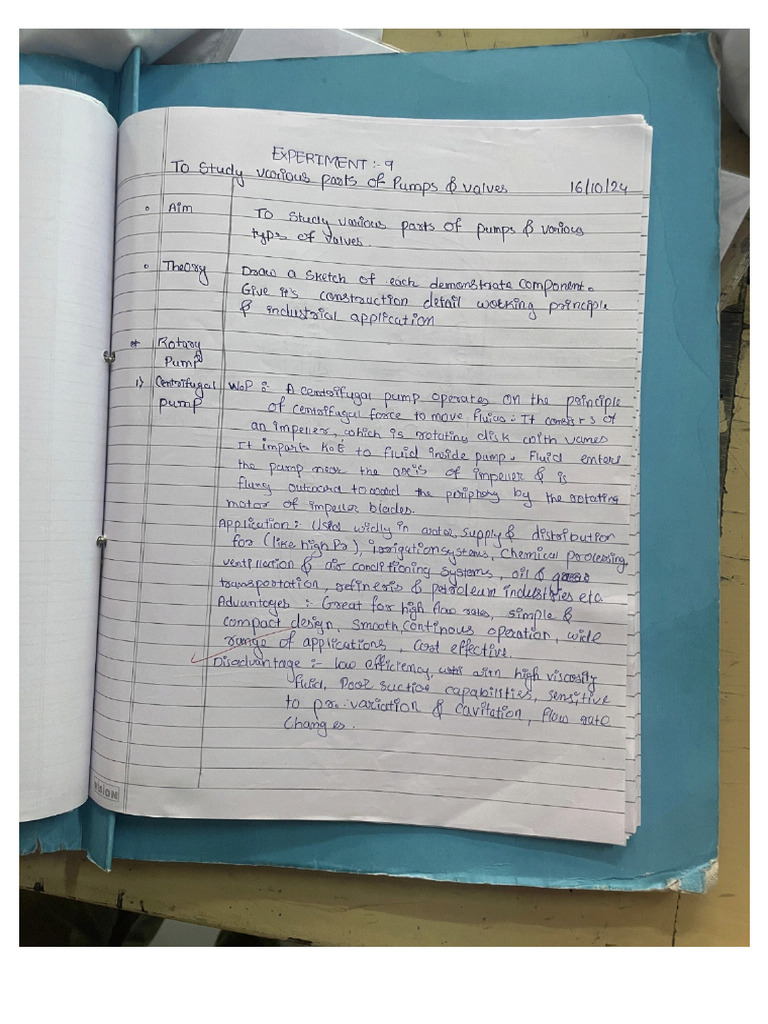 EXPERIMENT :- 9
To Study various parts of Pumps & valves 16/10/24
• Aim To study various parts of pumps & various
types of valves.
• Theory Draw a sketch of each demonstrate component.
Give it's construction detail working principle
& industrial application
* Rotary
Pump
1) Centrifugal WoP :- A centrifugal pump operates on the principle
pump of centrifugal force to move fluids. It consists of
an impeller, which is rotating disk with vanes
It imparts K.E to fluid inside pump. Fluid enters
the pump near the axis of impeller & is
flung outward toward the periphery by the rotating
motor of impeller blades.
Application :- Used widly in water supply & distribution
for (like high Pr), irrigation systems, Chemical processing,
ventillation & air conditioning systems, oil &
transportation, refineris & petroleum industries etc.
Advantages :- Great for high flow rates, simple &
compact design, smooth, continous operation, wide
range of applications, cost effective.
Disadvantage :- low efficiency, with high viscosity
fluid, Poor suction capabilities, sensitive
to pr. variation & cavitation, flow rate
changes.
VISION